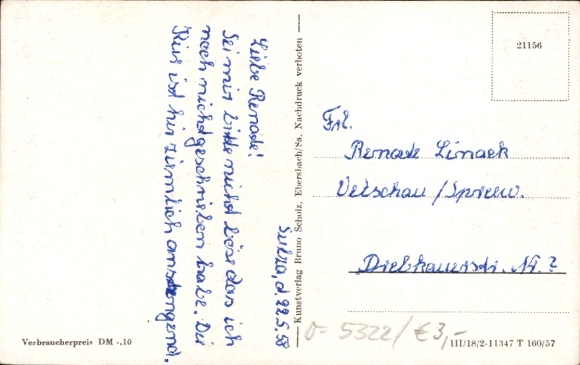 Sulza, d 22.5.58
Liebe Renate!
Sei mir bitte nicht böse das ich
noch nicht geschrieben habe. Die
Kur ist hir ziemlich anstengend.
Verbraucherpreis DM -.10
Kunstverlag Bruno Scholz, Ebersbach/Sa. Nachdruck verboten
21156
Frl.
Renate Limack
Vetschau / Spreew.
Nr. ?
0-5322/ €3,-
III/18/2-11347 T 160/57